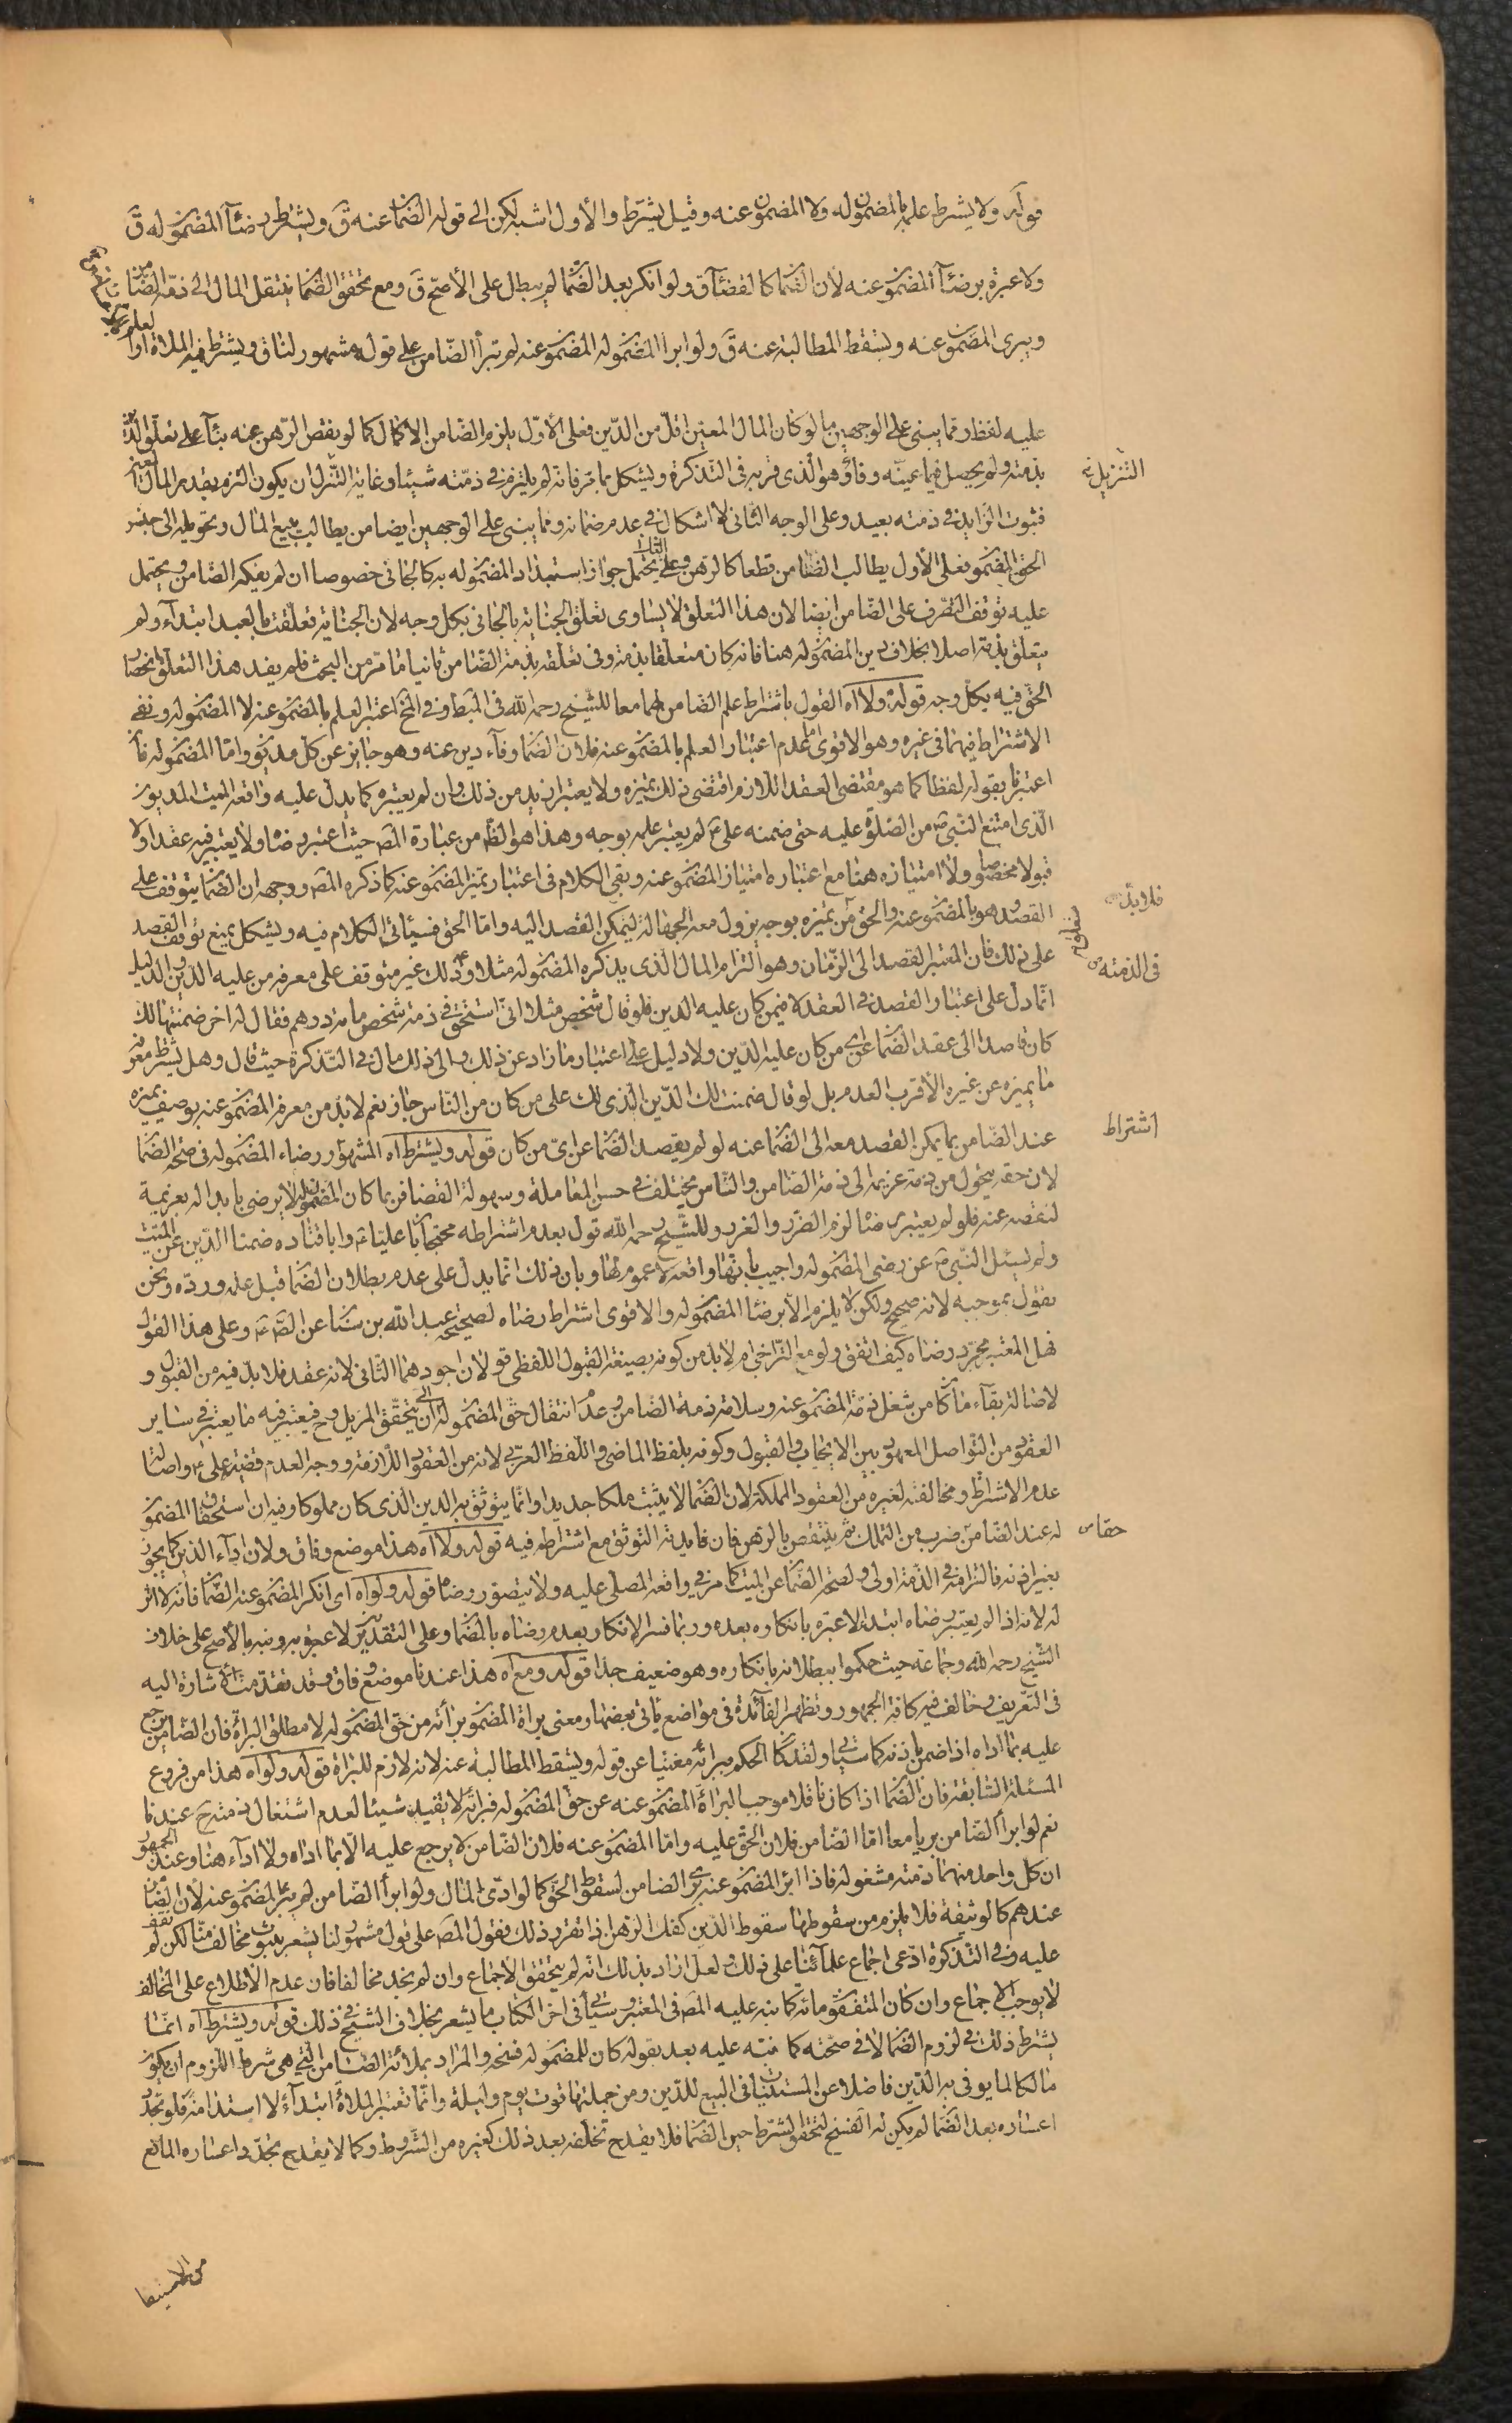 قوله ولا يشترط علمه بالمضمون له ولا المضمون عنه وقيل يشترط والأول اشبه لكن الى قوله الضمان عنه ق ويشترط رضآء المضمون له ق
ولا عبرة برضآء المضمون عنه لان الضمان كالقضآء ق ولو انكر بعد الضمان لم يبطل على الأصح ق ومع تحقق الضمان ينتقل المال الى ذمة الضامن
ويبرئ المضمون عنه ويسقط المطالبة عنه ق ولو ابرأ المضمون له المضمون عنه لم تبرأ الضامن على قول مشهور لنا ق ويشترط فيه الملاة او
عليه لفظ ومما يبنى على الوجهين ما لو كان المال المعين اقل من الدين فعلى الأول يلزم الضامن الاكمال كما لو نقص الرهن عنه بنآء على تعلق الدين
بذمته ولم يحصل فيما عينه وفاؤه والذي قربه في التذكرة ويشكل بما مر فانه لم يلتزم في ذمته شيئا وغاية التنزل ان يكون التزم بقدر المال المعين
التنزيل
فثبوت الزايد في ذمته بعيد وعلى الوجه الثاني لا اشكال في عدم ضمانه ومما يبنى على الوجهين ايضا من يطالب ببيع المال وتحويله الى جنس
الحق المضمون فعلى الأول يطالب الضامن قطعا كالرهن وعلى الثاني يحتمل جواز استبداد المضمون له به كالجاني خصوصا ان لم يفكه الضامن ويحتمل
عليه توقف التصرف على الضامن ايضا لان هذا التعلق لا يساوى تعلق الجناية بالجاني بكل وجه لان الجناية تعلقت بالعبد ابتداء ولم
يتعلق بذمته اصلا بخلاف دين المضمون له هنا فانه كان متعلقا بذمته وفي تعلقه بذمة الضامن ثانيا ما مر من البحث فلم يفد هذا التعلق انحصار
الحق فيه بكل وجه قوله ولا اه القول باشتراط علم الضامن بهما معا للشيخ رحمه الله في المبسوط وفي الخ اعتبر العلم بالمضمون عنه لا المضمون له ونفى
الاشتراط فيهما في غيره وهو الاقوى اما عدم اعتبار العلم بالمضمون عنه فلان الضمان وفآء دين عنه وهو جايز عن كل مديون واما المضمون له فان
اعتبرنا قبوله لفظا كما هو مقتضى العقد اللازم اقتضى ذلك تميزه ولا يعتبر ازيد من ذلك وان لم يعتبره كما يدل عليه واقعة الميت المديون
الذى امتنع النبي ص من الصلوة عليه حتى ضمنه علي ع لم يعتبر علمه بوجه وهذا هو الظ من عبارة المص حيث اعتبر رضاه ولا يعتبر فيه عقدا ولا
قبولا مخصوصا ولا امتيازه هنا مع اعتباره امتياز المضمون عنه وبقي الكلام في اعتبار تميز المضمون عنه كما ذكره المص ووجهه ان الضمان يتوقف على
القصد وهو بالمضمون عنه والحق من تميزه بوجه يزول معه الجهالة ليمكن القصد اليه واما الحق فسيأتي الكلام فيه ويشكل بمنع توقف القصد
فلا بد
على ذلك فان المعتبر القصد الى الزمان وهو التزام المال الذى يذكره المضمون له مثلا وذلك غير متوقف على معرفة من عليه الدين والدليل
في الذمة
انما دل على اعتبار القصد في العقد لا فيمن كان عليه الدين فلو قال شخص مثلا اني استحق في ذمة شخص مائة درهم فقال له اخر ضمنتها لك
كان قاصدا الى عقد الضمان عن اى من كان عليه الدين ولا دليل على اعتبار ما زاد عن ذلك والى ذلك مال في التذكرة حيث قال وهل يشترط معرفة
ما يميزه عن غيره الأقرب العدم بل لو قال ضمنت لك الدين الذى لك على من كان من الناس جاز نعم لا بد من معرفة المضمون عنه بوصف يميزه
عند الضامن بما يمكن القصد معه الى الضمان عنه لو لم يقصد الضمان عن اى من كان قوله ويشترط اه المشهور رضاء المضمون له في صحة الضمان
اشتراط
لان حقه يتحول من ذمة غريمه الى ذمة الضامن والناس يختلف في حسن المعاملة وسهولة القضا فربما كان المضمون له لا يرضى بابداله بغريمه
لنقصه عنه فلو لم يعتبر رضاه لزم الضرر والغرر وللشيخ رحمه الله قول بعدم اشتراطه محتجا بان عليا ع وابا قتادة ضمنا الدين عن الميت
ولم يسئل النبي ص عن رضى المضمون له واجيب بانها واقعة لا عموم لها وبان ذلك انما يدل على عدم بطلان الضمان قبل علمه ورده ونحن
نقول بموجبه لانه صحيح ولكن لا يلزم الا برضاء المضمون له والاقوى اشتراط رضاه لصحيحة عبد الله بن سنان عن الص ع وعلى هذا القول
فهل المعتبر مجرد رضاه كيف اتفق ولو مع التراخي ام لا بد من كونه بصيغة القبول اللفظي قولان اجودهما الثاني لانه عقد فلا بد فيه من القبول و
لاصالة بقآء ما كان من شغل ذمة المضمون عنه وسلامة ذمة الضامن وعدم انتقال حق المضمون له الى ان يتحقق المزيل وح فيعتبر فيه ما يعتبر في ساير
العقود من التواصل المعهود بين الايجاب والقبول وكونه بلفظ الماضي واللفظ العربي لانه من العقود اللازمة ووجه العدم قضية علي ع واصالة
عدم الاشتراط ومخالفته لغيره من العقود المملكة لان الضمان لا يثبت ملكا جديدا وانما يتوثق به الدين الذى كان مملوكا وفيه ان استحقاق المضمون
له عند الضامن ضرب من التملك ثم ينتقص بالرهن فان فايدته التوثق مع اشتراطه فيه قوله ولا اه هذا موضع وفاق ولان ادآء الدين كما يجوز
حقا
بغير اذنه فالتزامه في الذمة اولى ولصحة الضمان عن الميت كما مر في واقعة المصلى عليه ولا يتصور رضاه قوله ولو اه اى انكر المضمون عنه الضمان فانه لا اثر
له لانه اذا لم يعتبر رضاه ابتداء لا عبرة بانكاره بعده وربما فسر الانكار بعدم رضاه بالضمان وعلى التقديرين لا عبرة به ونبه بالأصح على خلاف
الشيخ رحمه الله وجماعة حيث حكموا ببطلانه بانكاره وهو ضعيف جدا قوله ومع اه هذا عندنا موضع وفاق وقد تقدمت الاشارة اليه
في التعريف وخالف فيه كافة الجمهور وتظهر الفائدة في مواضع يأتي بعضها ومعنى براءة المضمون برآءته من حق المضمون له لا مطلق البراءة فان الضامن يرجع
عليه بما اداه اذا ضمن باذنه كما سيأتي ولقد كان الحكم ببرائه مغنيا عن قوله ويسقط المطالبة عنه لانه لازم للبراءة قوله ولو اه هذا من فروع
المسئلة السابقة فان الضمان اذا كان ناقلا موجب البراءة المضمون عنه عن حق المضمون له فبرائه لا يفيد شيئا لعدم اشتغال ذمته ح عندنا
نعم لو ابرأ الضامن بريا معا اما الضامن فلان الحق عليه واما المضمون عنه فلان الضامن لا يرجع عليه الا بما اداه ولا ادآء هنا وعند الجمهور
ان كل واحد منهما ذمته مشغولة فاذا ابرأ المضمون عنه برئ الضامن لسقوط الحق كما لو ادى المال ولو ابرأ الضامن لم يبرأ المضمون عنه لان الضمان
عندهم كالوثيقة فلا يلزم من سقوطها سقوط الدين كفك الرهن اذا تقرر ذلك فقول المص على قول مشهور لنا يشعر بثبوت مخالف منا لكن لم نقف
عليه وفي التذكرة ادعى اجماع علمائنا على ذلك ولعل اراد بذلك انه لم يتحقق الاجماع وان لم يجد مخالفا فان عدم الاطلاع على المخالف
لا يوجب الاجماع وان كان المتفقون مائة كما نبه عليه المص في المعتبر وسيأتي في اخر الكتاب ما يشعر بخلاف الشيخ في ذلك قوله ويشترط اه انما
يشترط ذلك في لزوم الضمان لا في صحته كما نبه عليه بعد بقوله كان للمضمون له فسخه والمراد بملائة الضامن التي هي شرط اللزوم ان يكون
مالكا لما يوفى به الدين فاضلا عن المستثنيات في البيع للدين ومن جملتها قوت يوم وليلة وانما تعتبر الملاءة ابتدآء لا استدامة فلو تجدد
اعساره بعد الضمان لم يكن له الفسخ لتحقق الشرط حين الضمان فلا يقدح تخلفه بعد ذلك كغيره من الشروط وكما لا يقدح تجدد اعساره المانع
من الاستيفا